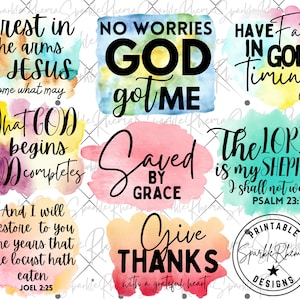 rest in
the arms
JESUS
come what may.
NO WORRIES
GOD
got ME
HAVE
IN GOD
Timing
What GOD
begins
completes
Saved
BY
GRACE
The LORD
is my
I shall not
PSALM 23:
And I will
restore to you
the years that
the locust hath
eaten
JOEL 2:25
Give
THANKS
with a grateful heart
PRINTABLE
SparkleRhema
DESIGNS